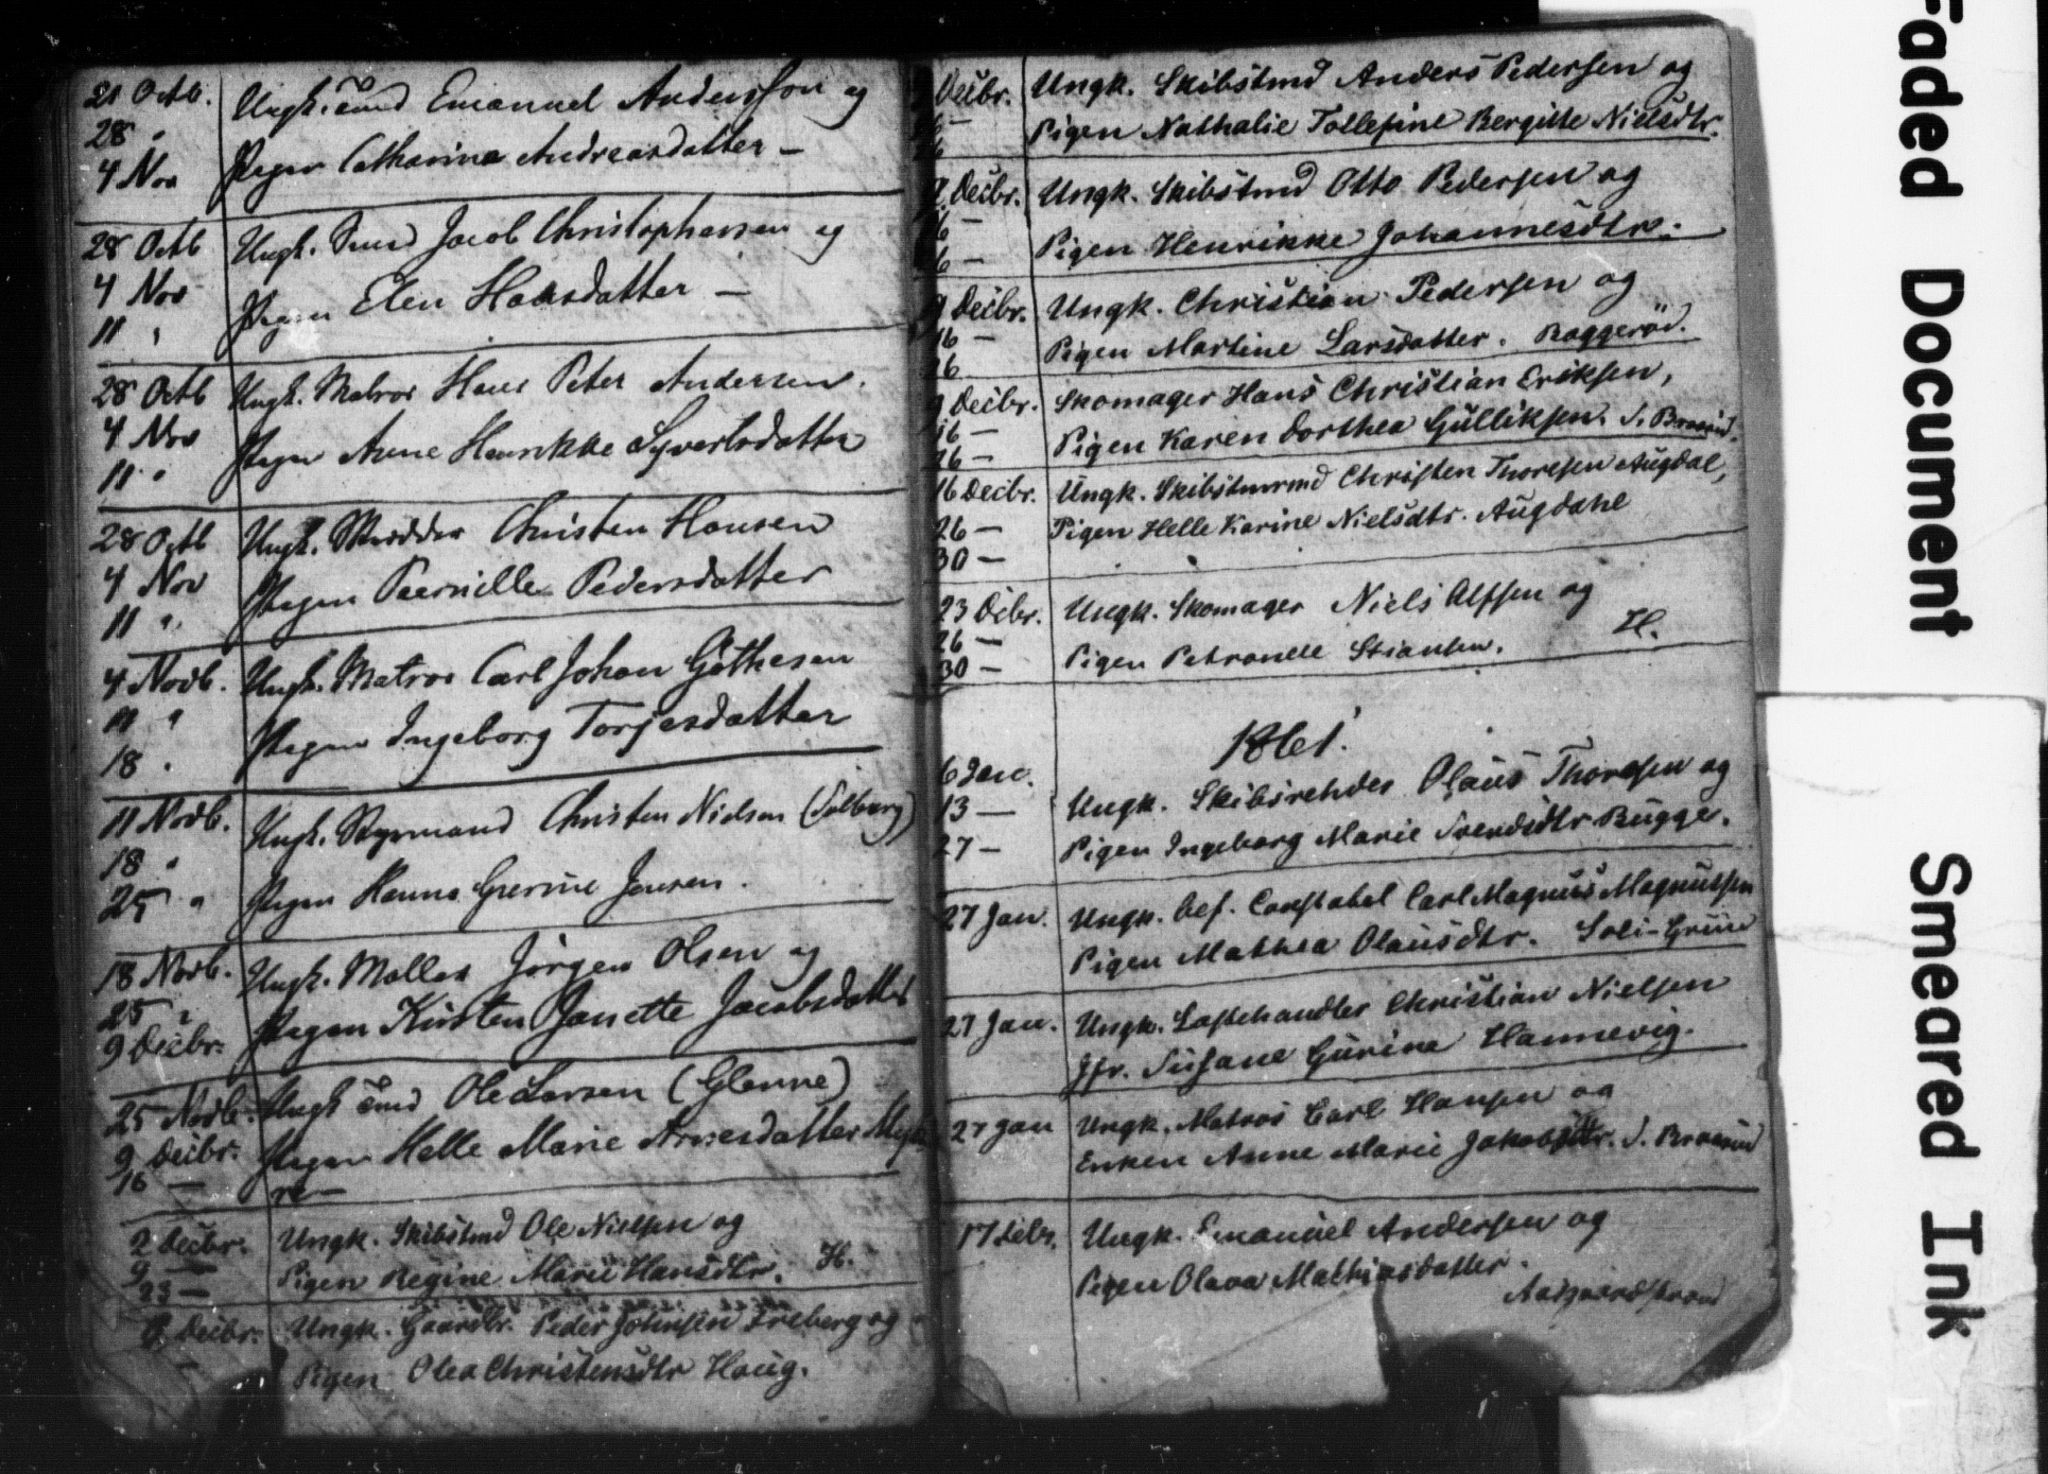 21 Octb. Ungk. Smd Emanuel Andersson og
28 "
4 Nov Pigen Catharina Andreasdatter —
28 Octb Ungk. Smd Jacob Christophersen og
4 Nov
11 " Pigen Elen Hansdatter —
28 Octb Ungk. Matros Hans Peter Andersen.
4 Nov
11 " Pigen Anne Henrikke Syvertsdatter
28 Octb Ungk. Skrædder Christen Hansen
4 Nov
11 " Pigen Peernille Pedersdatter
4 Novb. Ungk. Matros Carl Johan Göthesen
11 "
18 " Pigen Ingeborg Torjesdatter
11 Novb. Ungk. Styrmand Christen Nielsen (Solberg)
18 "
25 " Pigen Hanna Grerine Jensen.
18 Novb. Ungk. Møller Jörgen Olsen og
25 "
9 Decbr. Pigen Kirsten Janette Jacobsdatter
25 Novb. Ungk Smd Ole Larsen (Glenne)
9 Decbr. Pigen Helle Marie Arnesdatter
16 — re —
2 Decbr. Ungk. Skibstmd Ole Nielsen og
9 —
23 — Pigen Regine Marie Hansdtr. H.
9 Decbr. Ungk. Gaardbr. Peder Johnsen Freberg og
— Pigen Olea Christensdtr Haug.
Decbr. Ungk. Skibstmd Anders Pedersen og
16 — Pigen Nathalie Tollefine Bergitte Nielsdtr.
26
9 Decbr. Ungk. Skibstmd Otto Pedersen og
16 —
26 — Pigen Henrikke Johannesdtr.
9 Decbr. Ungk. Christian Pedersen og
16 —
26 Pigen Martine Larsdatter. Roggeröd.
9 Decbr. Skomager Hans Christian Eriksen,
16 —
26 — Pigen Karen Dorthea Gulliksen. S. Braarud.
16 Decbr. Ungk. Skibstmrmd Christen Thoresen Augdal,
26 — Pigen Helle Karine Nielsdtr. Augdahl
30 —
23 Decbr. Ungk. Skomager Niels Alfsen og
26 —
30 — Pigen Petronelle Stiansen. H.
1861.
6 Jan. Ungk. Skibsreheder Olaus Thoresen og
13 —
27 — Pigen Ingeborg Marie Svendsdtr Bugge.
27 Jan. Ungk. Bef. Constabel Carl Magnus Magnussen
Pigen Mathea Olausdtr. Soli-Grüne
27 Jan. Ungk. Lasthandler Christian Nielsen
Jfr. Susane Gurine Hannevig.
27 Jan Ungk. Matros Carl Hansen og
Enken Anne Marie Jakobsdtr. S. Braarud
17 Febr. Ungk. Emanuel Andersen og
Pigen Olava Mathiasdatter.
Aasgaardstrand
Faded Document
Smeared Ink